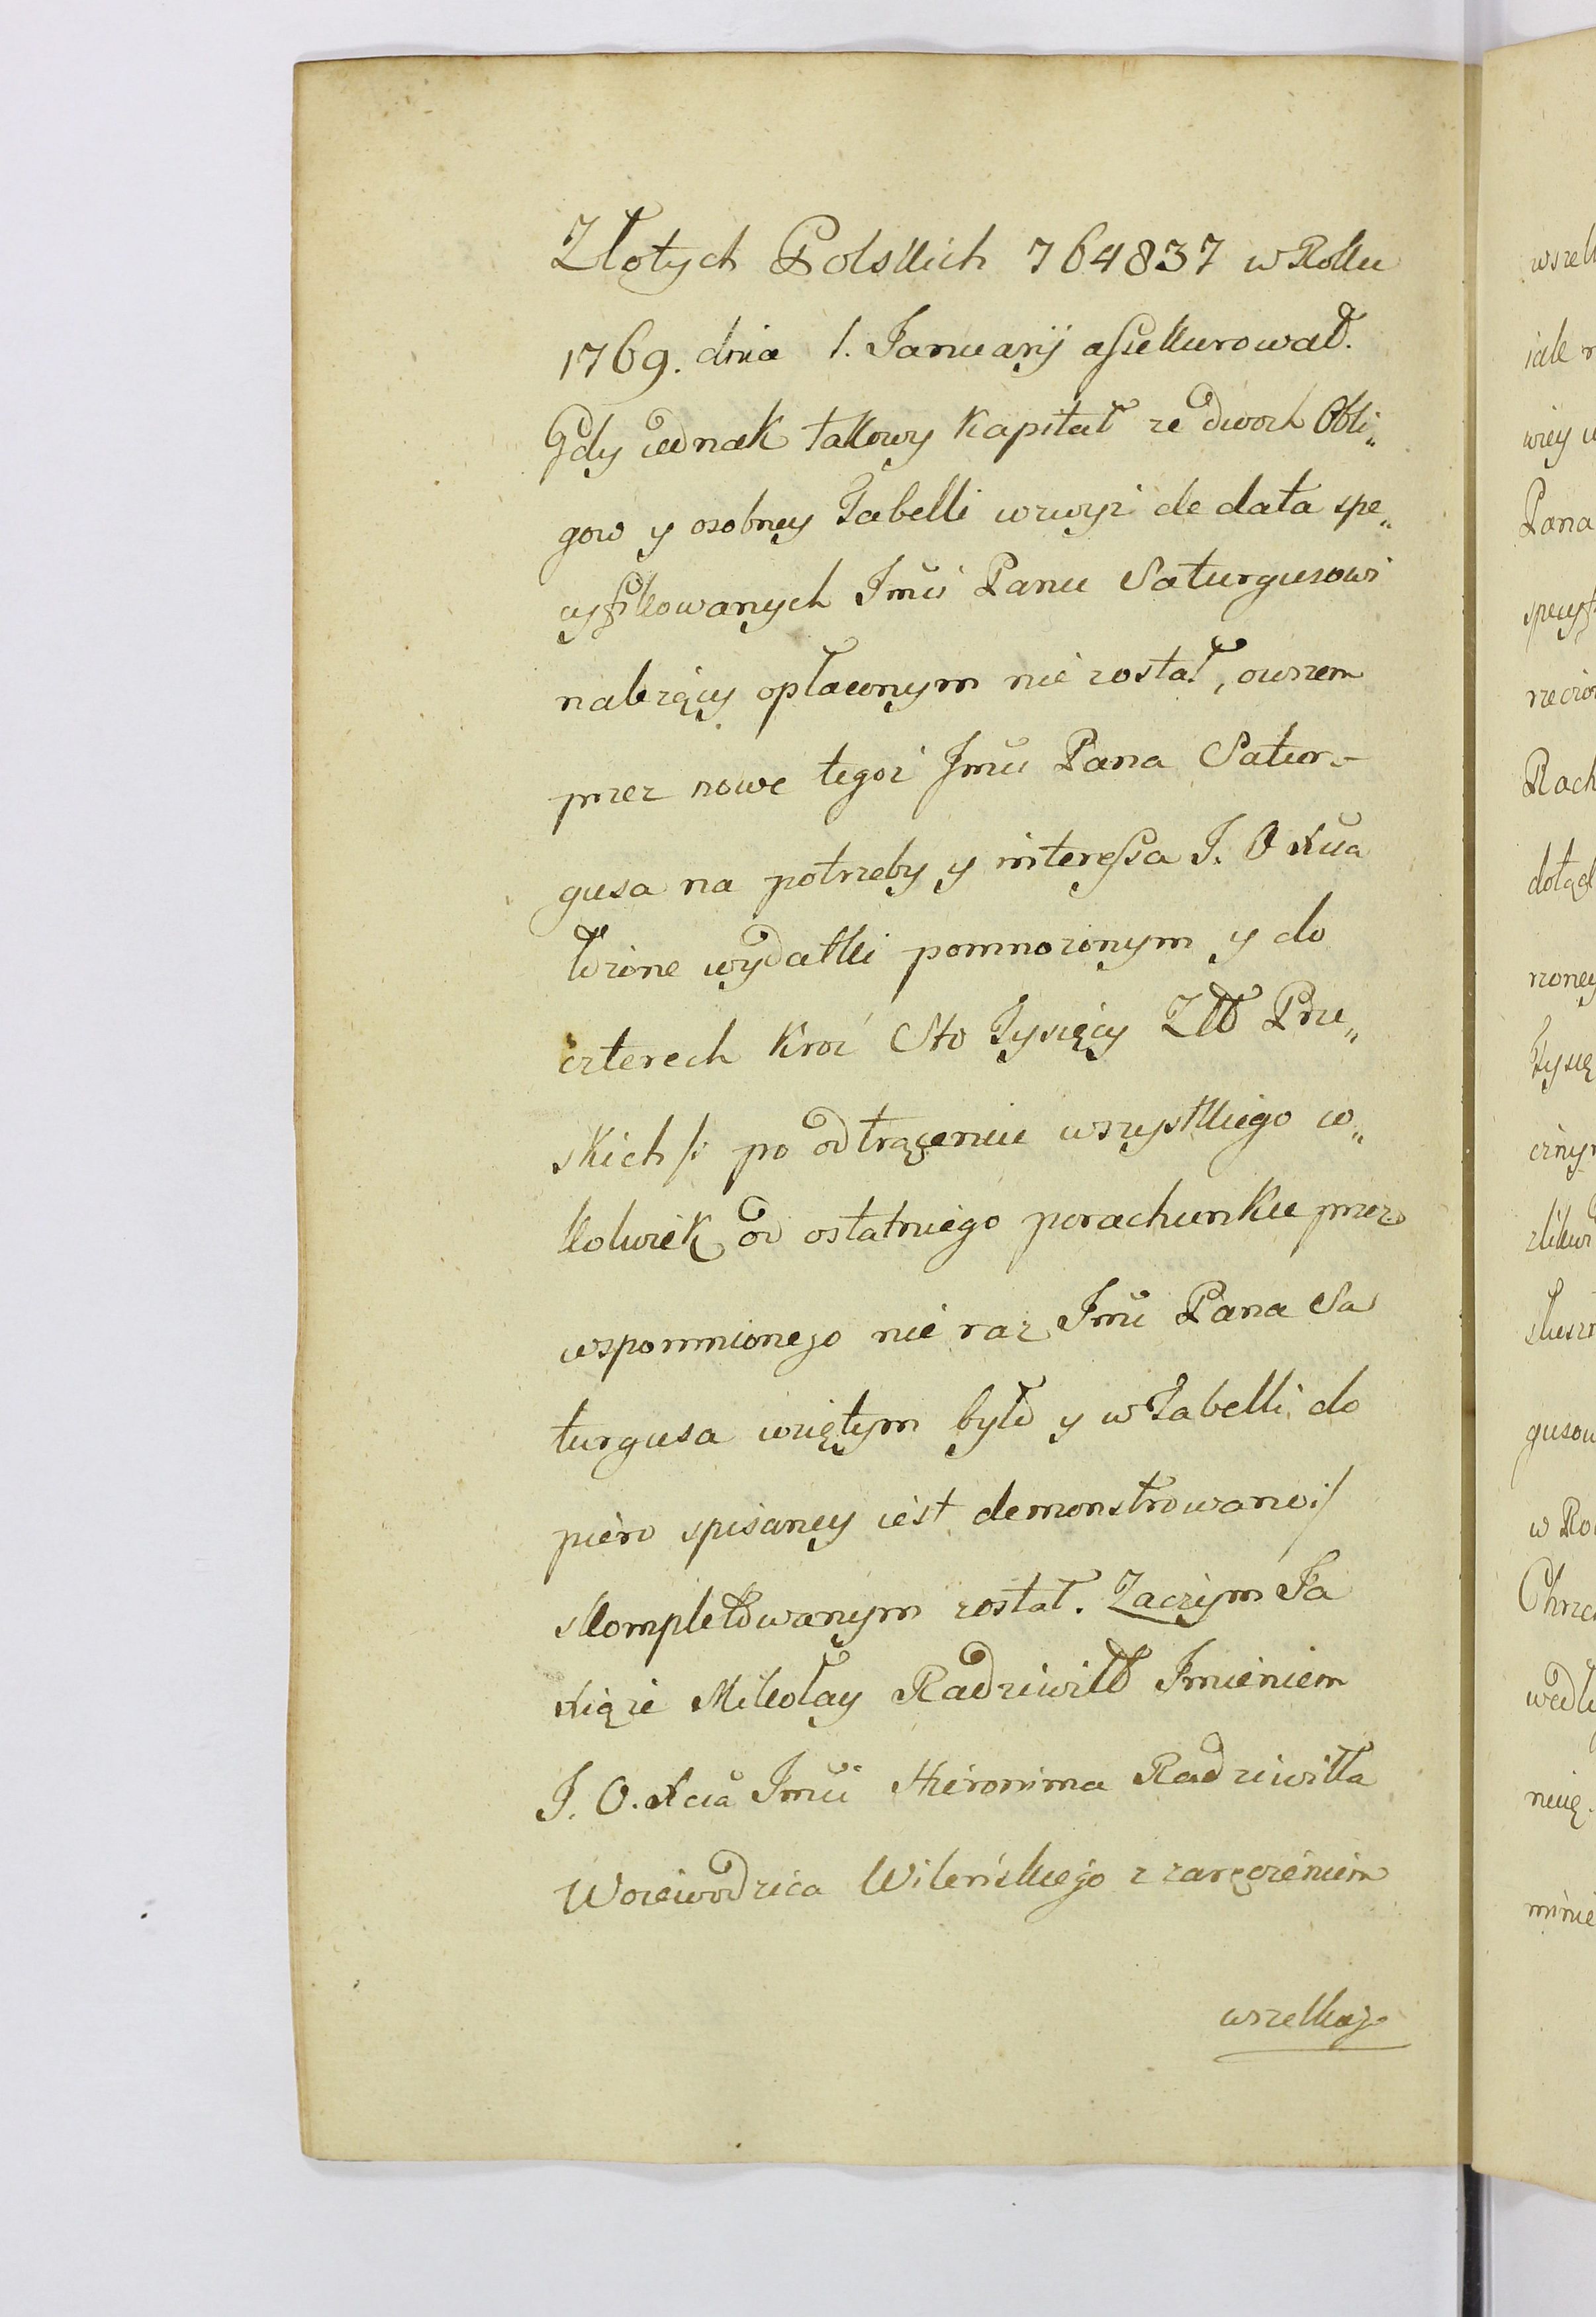 Złotych Polskich 764837 w Roku
1769. dnia 1. Januarij assekurował.
Gdy iednak takowy Kapitał ze dwoch Obli„
gow y osobney Tabelli wzwyż de data spe„
cyfikowanych Jmci Panu Saturgusowi
należący opłaconym nie został, owszem
przez nowe tegoż Jmci Pana Satur-
gusa na potrzeby y interessa J. O Xcia
łożone wydatki pomnożonym y do
czterech Kroć Sto Tysięcy Zło Pru„
skich /: po odtrąceniu wszystkiego co„
kolwiek od ostatniego porachunku przez
wspomnionego nie raz Jmci Pana Sa
turgusa wziętym było y w Tabelli do
piero spisaney iest demonstrowano :/
skompletowanym został. Zaczym Ja
Xiąże Mikołay Radziwiłł Jmieniem
J. O. Xcia Jmci Hieronima Radziwiłła
Woiewodzica Wileńskiego z zaręczeniem
wszelkag
wszelk
iale
wiey
Pana
specyf
rzeczo
Rach
dotąd
rzoney
Tysię
czny
zlikwi
słuszn
gusow
w Ro
Chrze
wedłu
niię.
minie